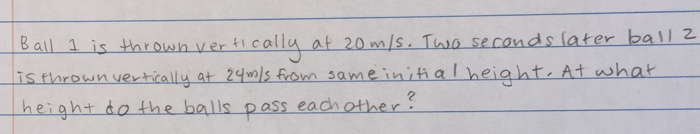 Ball 1 is thrown vertically at 20 m/s. Two seconds later ball 2
is thrown vertically at 24m/s from same initial height. At what
height do the balls pass each other?